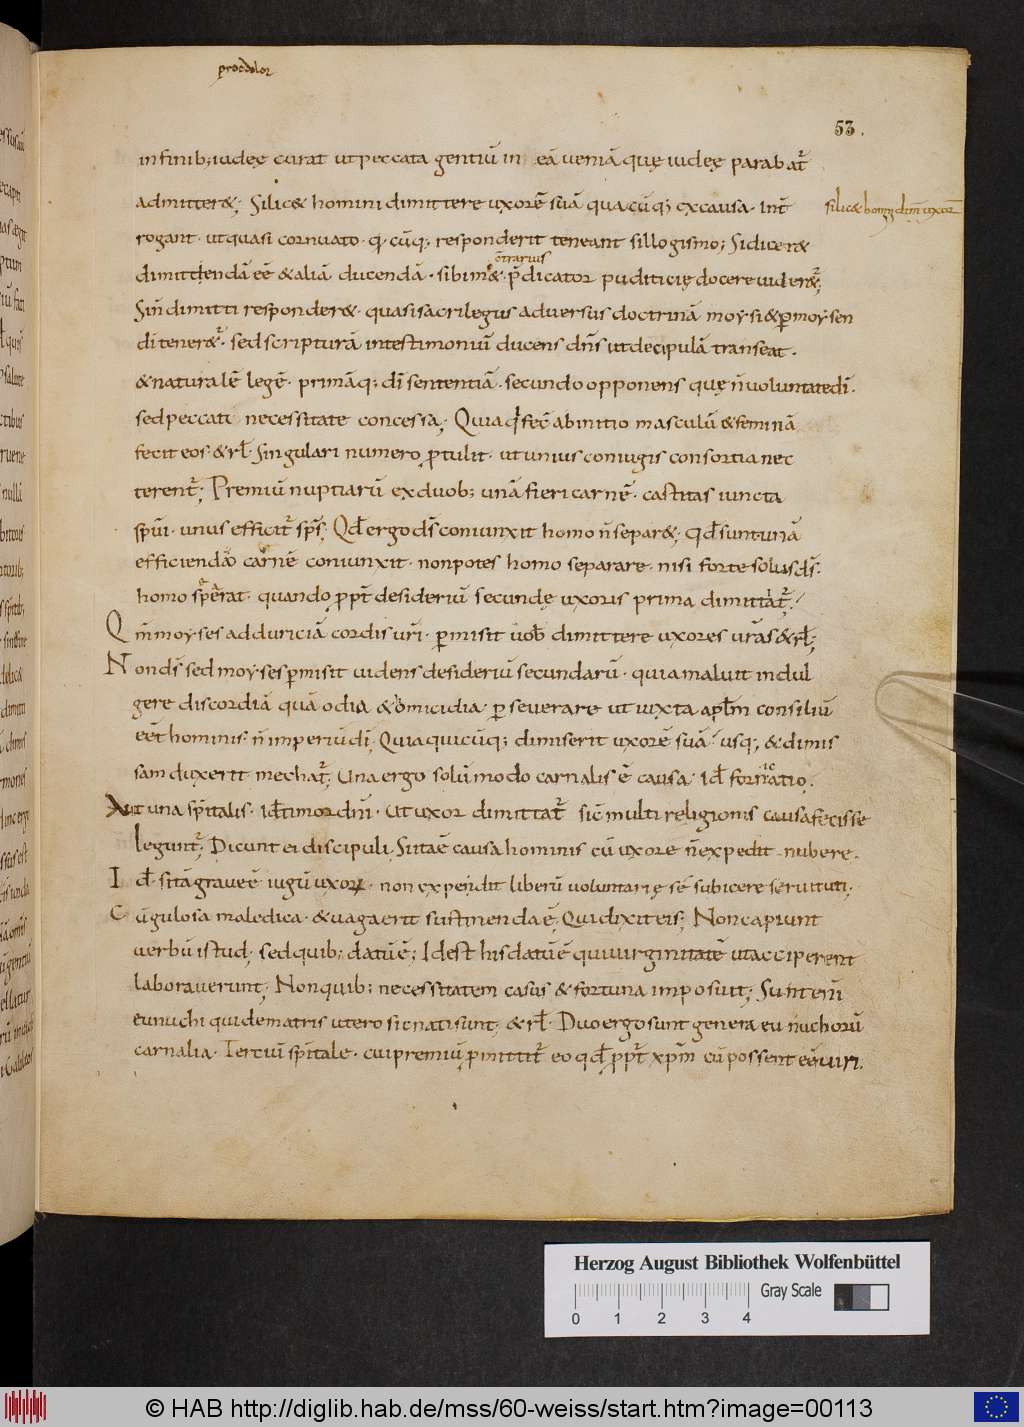 prochdolor
53.
in finib; iudeę curat ut peccata gentiū in eā ueniā quę iudeę parabat᷑
admitter&; Si lic& homini dimittere uxorē suā qua cūq; ex causa · Int̄
silic& homī dim̄ uxor̄
rogant · ut quasi cornuato · q̄ cūq; responderit teneant sillogismo; Si dixer&
ōtrarius
dimittendā eē & aliā ducendā · sibim& p̄dicator puditicię docere uider&᷑;
Sin̄ dimitti responder& · quasi sacrilegus aduersus doctrinā moysi & p̲ moysen
di tener&᷑ · sed scripturā in testimoniū ducens dn̄s ut decipulā transeat ·
& naturalē legē · primāq; dī sententiā · secundo opponens quę n̄ uoluntate dī ·
sed peccati necessitate concessa; Quia q̇ fec̄ ab initio masculū & feminā
fecit eos · & rł · Singulari numero p̲tulit · ut unius coniugis consortia nec
terent᷑; Premiū nuptiarū ex duob; unā fieri carnē · castitas iuncta
sp̄ui · unus efficit᷑ sp̄s; Qđ ergo ds̄ coniunxit homo n̄ separ&; Qđ sunt unā
efficiendo carnē coniunxit · non potes homo separare · nisi forte solus ds̄.
homo sep̲erat · quando p̲pt̄ desideriū secundę uxoris prima dimittat᷑;
Qm̄ moyses ad duriciā cordis ur̄i · p̲misit uob̄ dimittere uxores ur̄as & rł;
Non ds̄ sed moyses p̲misit uidens desideriū secundarū · quia maluit indul
gere discordiā quā odia & homicidia · p̲seuerare ut iuxta apl̄m consiliū
eēt hominis · n̄ imperiū dī; Quia quicūq; dimiserit uxorē suā · usq; & dimis
sam duxerit mechat᷑; Una ergo solūmodo carnalis ē causa · Iđ fornicatio.
Aut una sp̄italis · iđ timor dn̄i · Ut uxor dimittat᷑ sic̄ multi religionis causa fecisse
legunt᷑; Dicunt ei discipuli, Si ita ē causa hominis cū uxore n̄ expedit nubere.
Iđ · si tā graue ē iugū uxor · non expendit liberū uoluntarię sē subicere seruituti;
Cū gulosa maledica · & uaga erit sustinenda ē; Qui dixit eis; Non capiunt
uerbū istud · sed quib; datū ē; Id est his datū ē qui uirginitatē ut acciperent
laborauerunt; Non quib; necessitatem casus & fortuna imposuit; Sunt eni
eunuchi qui de matris utero sic nati sunt; & rł · Duo ergo sunt genera eunuchorū
carnalia · Tertiū sp̄itale · cui premiū p̲mittit᷑ eo qđ p̲pt̄ xp̄m cū possent eē uiri.
Herzog August Bibliothek Wolfenbüttel
Gray Scale
0 1 2 3 4
© HAB http://diglib.hab.de/mss/60-weiss/start.htm?image=00113